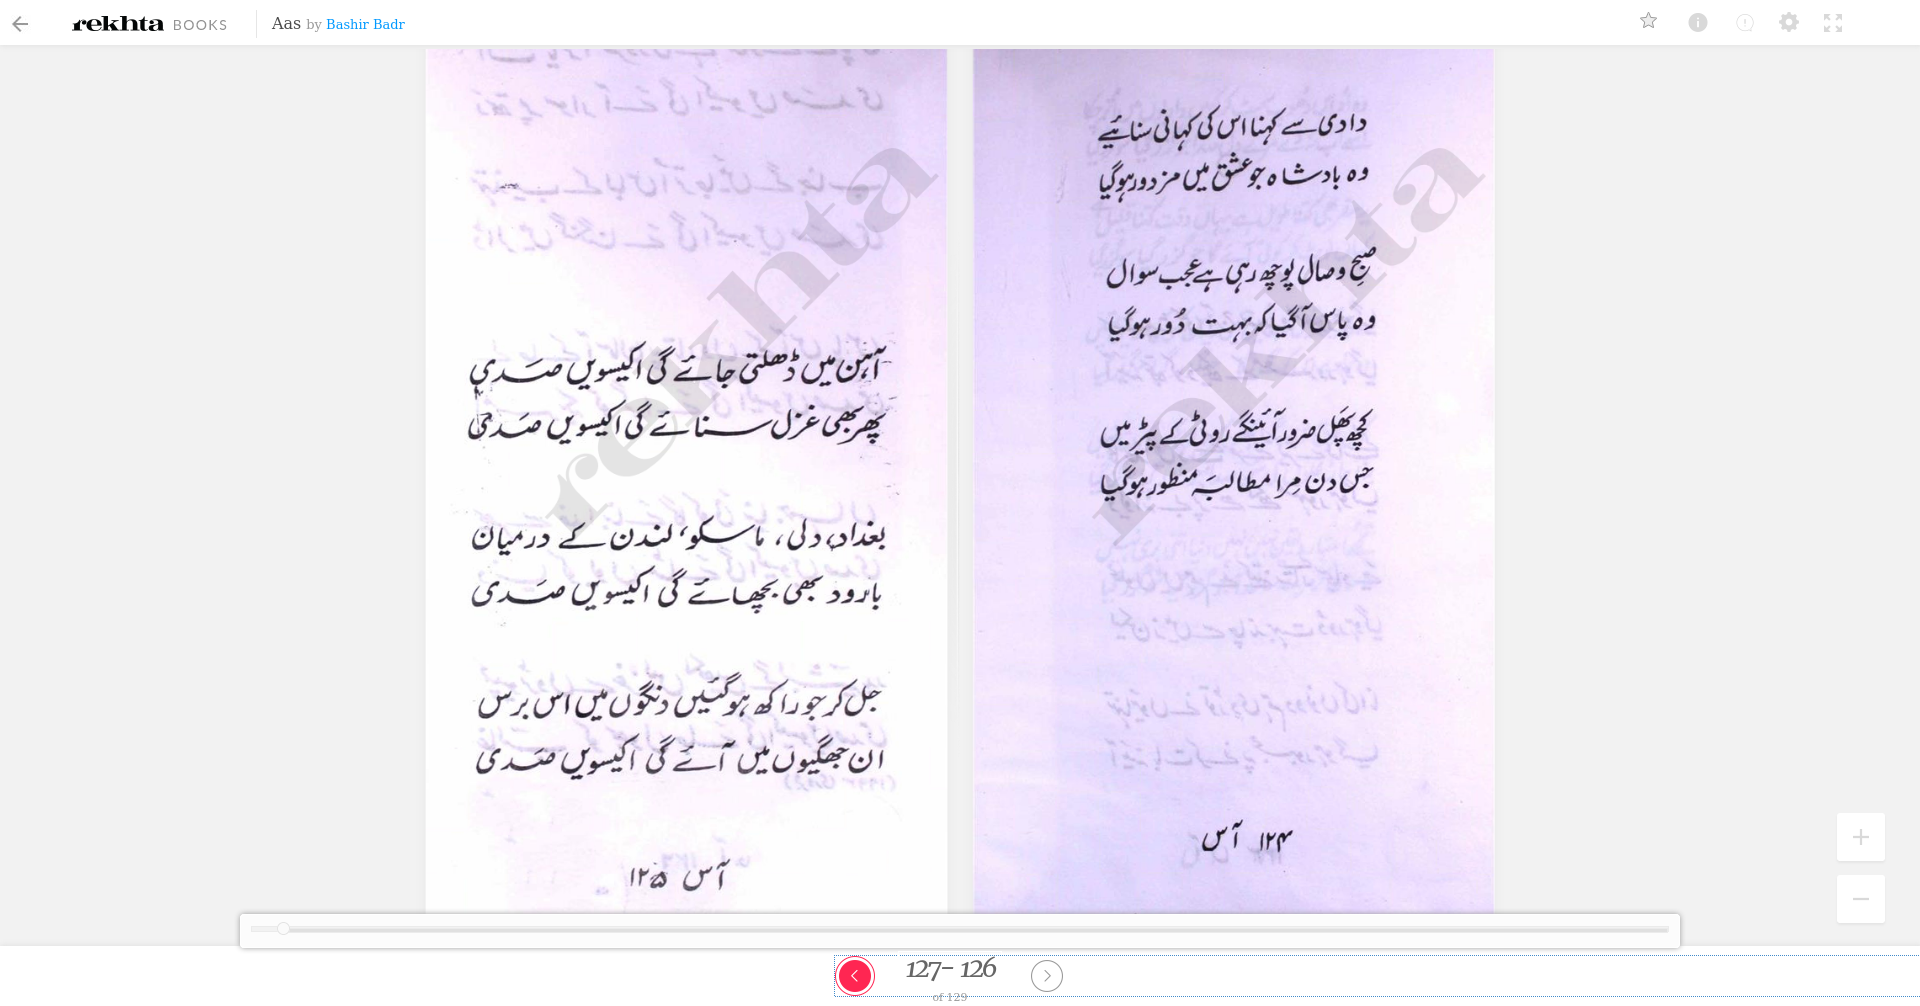 rekhta BOOKS Aas by Bashir Badr
دادی سے کہنا اس کی کہانی سنائیے
وہ بادشاہ جو عشق میں مزدور ہوگیا
صبحِ وصال پوچھ رہی ہے عجب سوال
وہ پاس آگیا کہ بہت دُور ہوگیا
کچھ پھَل ضرور آئینگے روٹی کے پیڑ میں
جس دن مِرا مطالبَہ منظور ہوگیا
۱۲۴ آس
آہن میں ڈھلتی جائے گی اکیسویں صَدی
پھر بھی غزل سنائے گی اکیسویں صَدی
بغداد، دلی، ماسکو، لندن کے درمیان
بارود بھی بچھائے گی اکیسویں صَدی
جل کر جو راکھ ہوگئیں دنگوں میں اس برس
ان جھگیوں میں آئے گی اکیسویں صَدی
آس ۱۲۵
rekhta
rekhta
127- 126
of 129